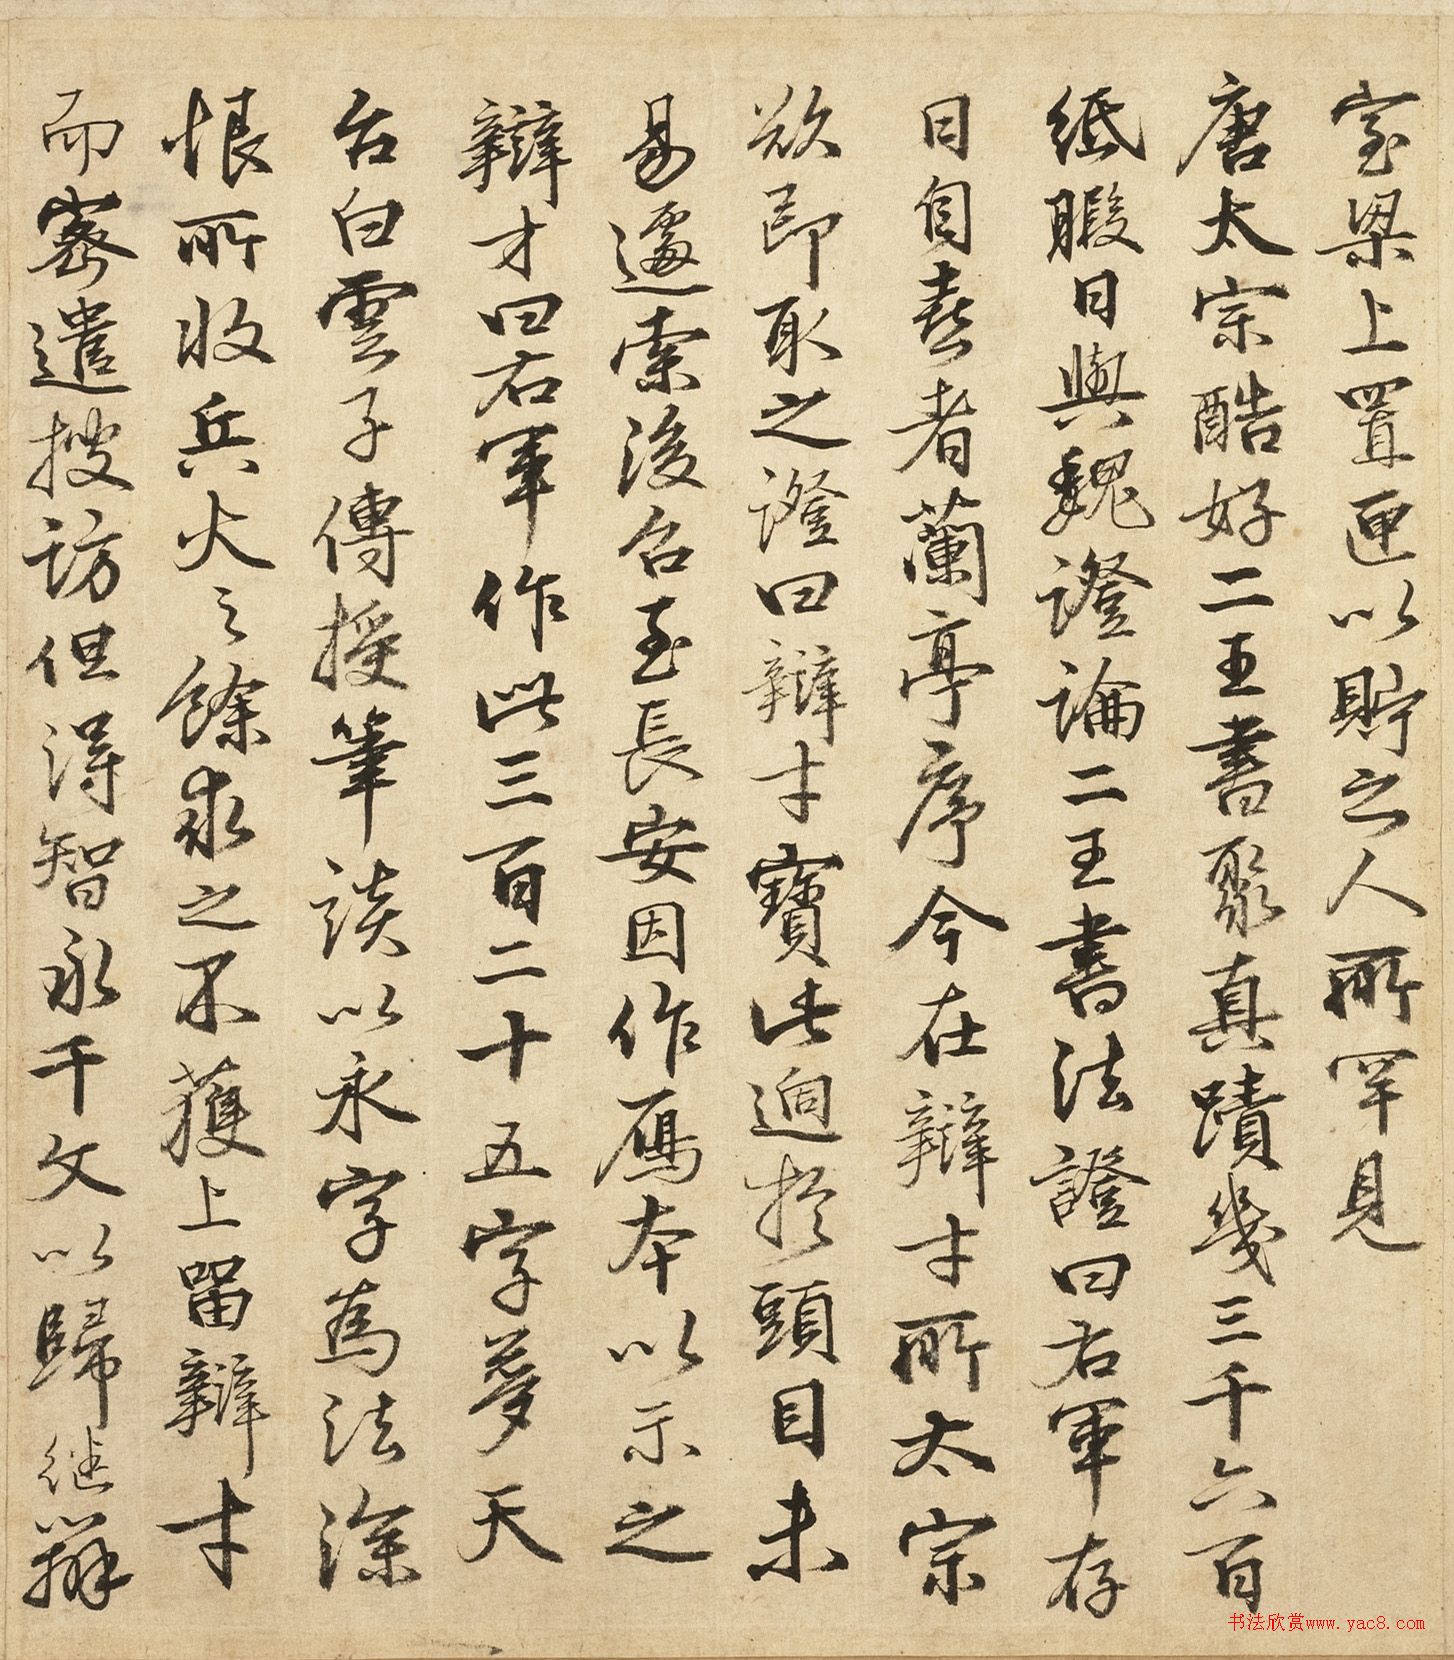 室梁上置匣以貯之人所罕見
唐太宗酷好二王書聚真蹟幾三千六百
紙暇日與魏證論二王書法證曰右軍存
日自喜者蘭亭序今在辯才所太宗
欲即取之證曰辯才寶此過於頭目未
易遽索後召至長安因作鴈本以示之
辯才曰右軍作此三百二十五字夢天
台白雲子傳授筆訣以永字為法深
恨所收兵火之餘求之不獲上留辯才
而密遣搜訪但得智永千文以歸繼辯
书法欣赏www.yac8.com